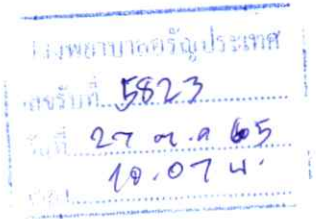 โรงพยาบาลอรัญประเทศ
เลขรับที่ 5823
วันที่ 27 ต.ค 65
เวลา 10.07 น.